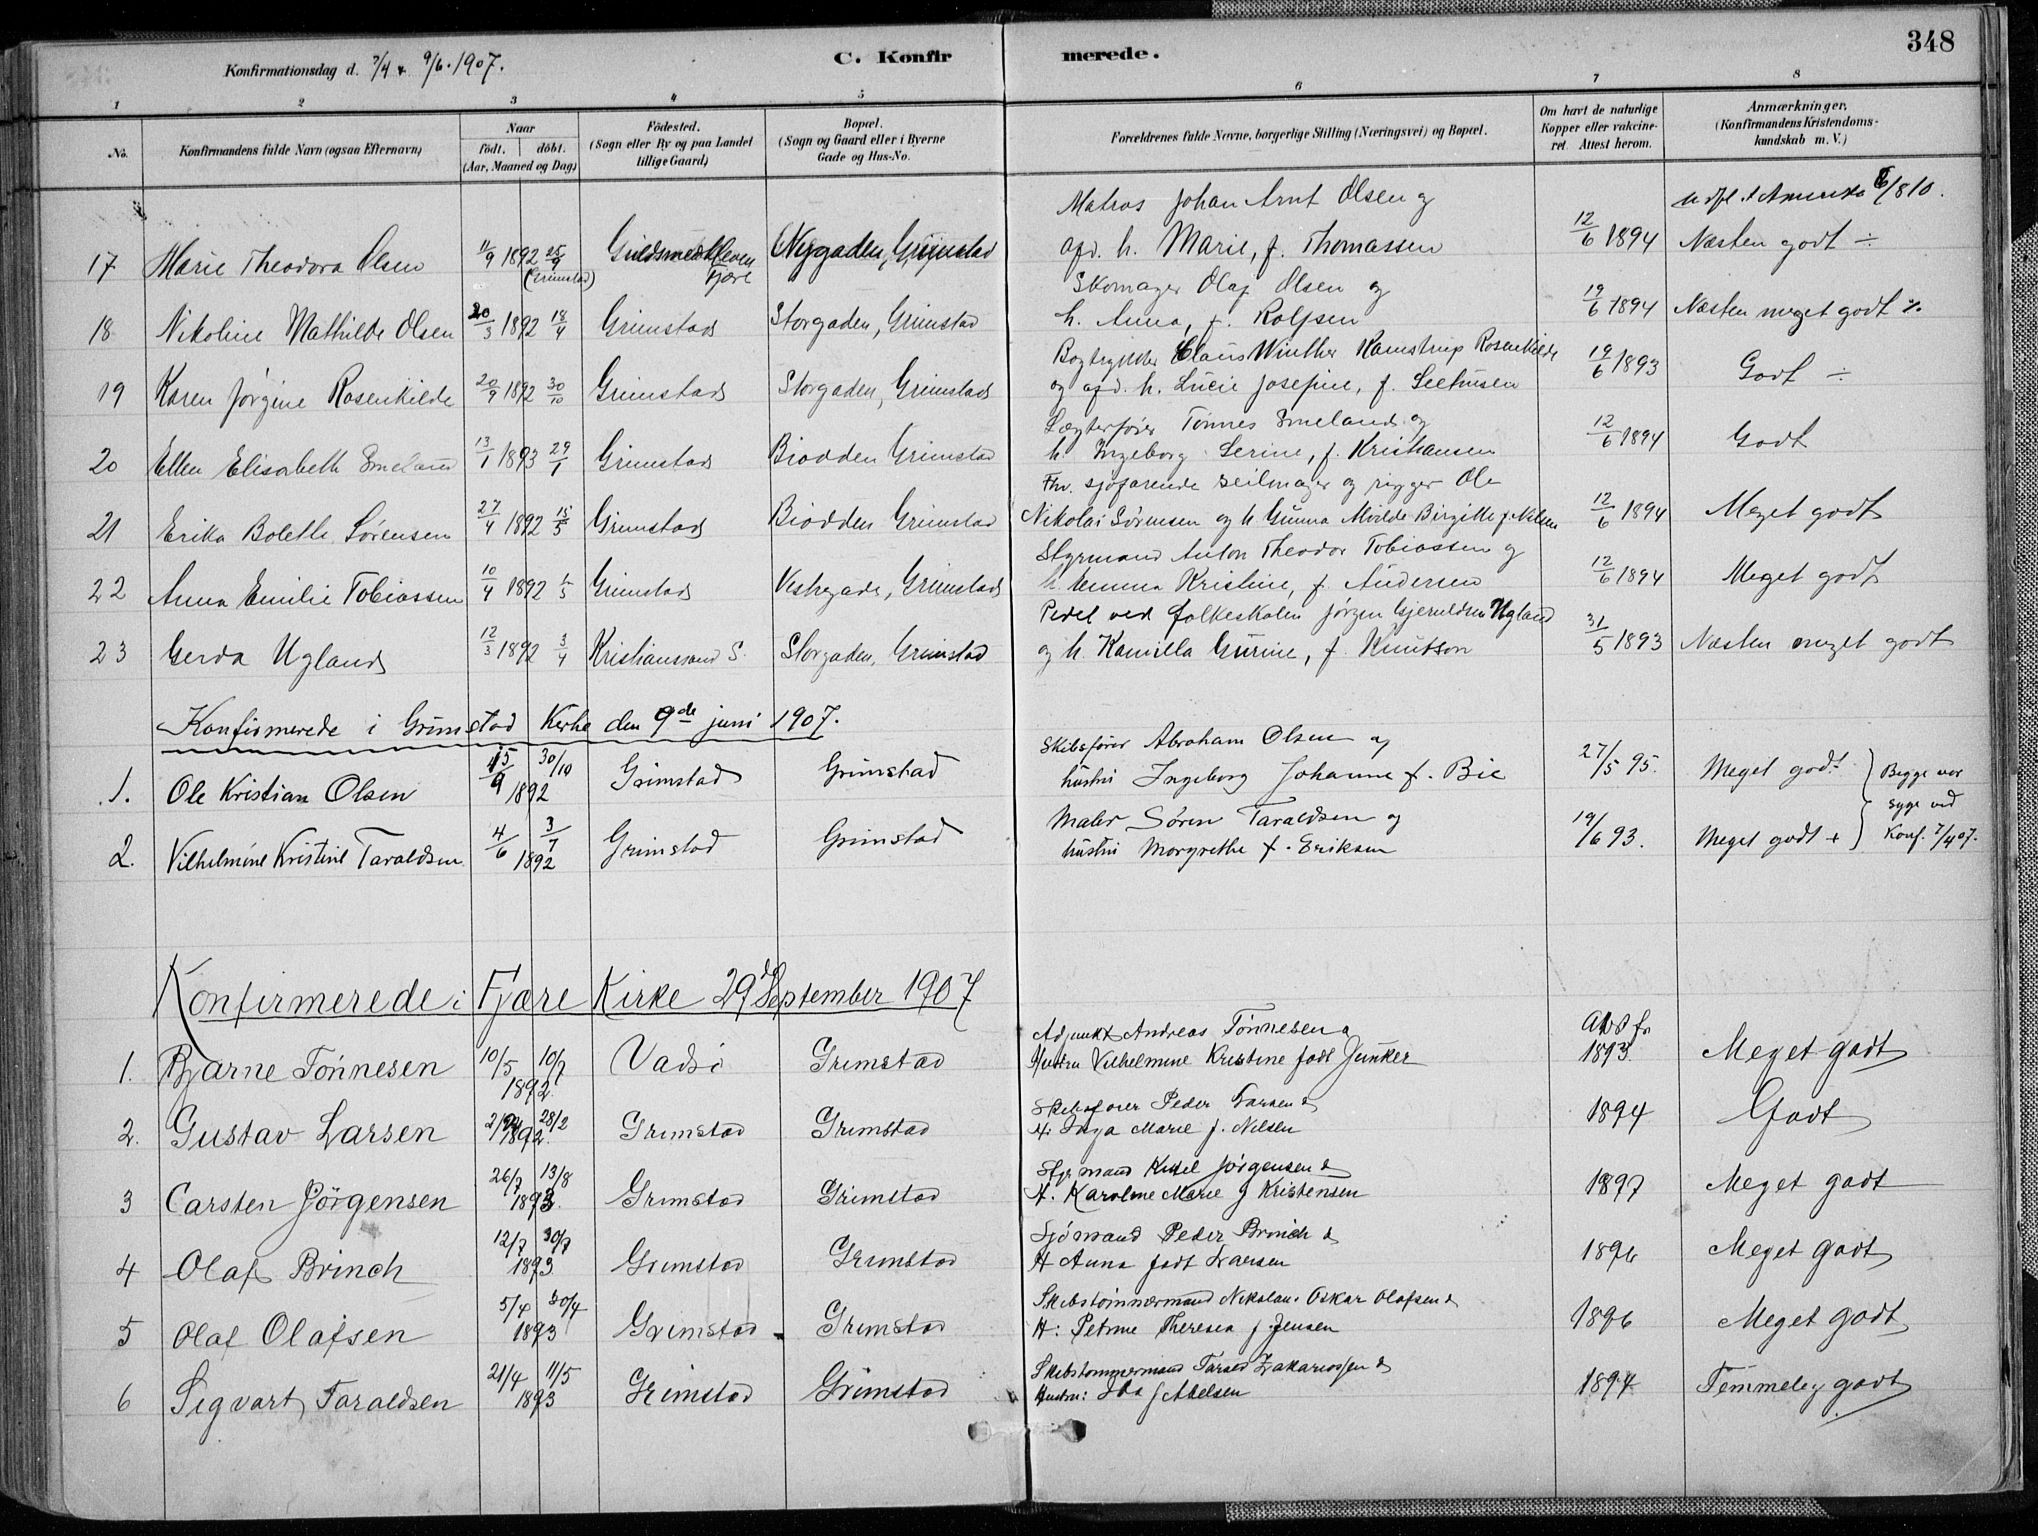 348
Konfirmationsdag d. 7/4 & 9/6. 1907.
C. Konfirmerede.
1 2 3 4 5 6 7 8
No.
Konfirmandens fulde Navn (ogsaa Efternavn)
Naar
født. døbt.
(Aar, Maaned og Dag)
Fødested.
(Sogn eller By og paa Landet
tillige Gaard)
Bopæl.
(Sogn og Gaard eller i Byerne
Gade og Hus-No.
Forældrenes fulde Navne, borgerlige Stilling (Næringsvei) og Bopæl.
Om havt de naturlige
Kopper eller vakcine-
ret. Attest herom.
Anmærkninger.
(Konfirmandens Kristendoms-
kundskab m. V.)
Matros Johan Arnt Olsen og
udfl. t. Amerika 6/8 10.
17 Marie Theodora Olsen 11/9 1892 25/9 (Grimstad) Fjære Nygaden, Grimstad
afd. h. Marie, f. Thomassen 12/6 1894 Næsten godt ÷
Skomager Olaf Olsen og
18 Nikoline Mathilde Olsen 20/3 1892 18/4 Grimstad Storgaden, Grimstad
h. Anna, f. Rolfsen 19/6 1894 Næsten meget godt
Bogtrykker Claus Winther Kamstrup Rosenkilde
19 Karen Jørgine Rosenkilde 20/9 1892 30/10 Grimstad Storgaden, Grimstad
og afd. h. Lucie Josefine, f. Seehusen 19/6 1893 Godt ÷
Lægterfører Tønnes Smeland og
20 Ellen Elisabeth Smeland 13/1 1893 29/1 Grimstad Biodden Grimstad
h. Ingeborg Serine, f. Kristiansen 12/6 1894 Godt
Fhv. sjøfarende seilmager og rigger Ole
21 Erika Bolette Sørensen 27/4 1892 15/5 Grimstad Biodden Grimstad
Nikolai Sørensen og h. Gunna Milde Birgitte f. Nilsen 12/6 1894 Meget godt
Styrmand Anton Theodor Tobiassen og
22 Anna Emilie Tobiassen 10/4 1892 Grimstad Vestregade, Grimstad
h. Emma Kristine, f. Andersen 12/6 1894 Meget godt
Pedel ved folkeskolen Jørgen Gjeruldsen Ugland
23 Gerda Ugland 12/3 1892 3/4 Kristianssand S. Storgaden, Grimstad
og h. Kamilla Gurine, f. Knutson 31/5 1893 Næsten meget godt
Konfirmerede i Grimstad Kirke den 9de juni 1907.
Skibsfører Abraham Olsen og
1. Ole Kristian Olsen 15/9 30/10 1892 Grimstad Grimstad
hustru Ingeborg Johanne f. Bie 27/5 95. Meget godt
Maler Søren Taraldsen og
2. Vilhelmine Kristine Taraldsen 4/6 3/7 1892 Grimstad Grimstad
hustru Margrethe f. Eriksen 19/6 93. Meget godt +
Begge var
syge ved
Konf. 7/4 07.
Konfirmerede i Fjære Kirke 29d September 1907
Adjunkt Andreas Tønnesen &
1. Bjarne Tønnesen 10/5 10/7 1892 Vadsö Grimstad
Hustru Vilhelmine Kristine født Junker 1893. Meget godt
Skibsfører Peder Larsen &
2. Gustav Larsen 28/2 1892. Grimstad Grimstad
H: Inga Marie f. Nilsen 1894 Godt
Styrmand Ketil Jørgensen &
3 Carsten Jörgensen 26/7 13/8 1893. Grimstad Grimstad
H. Karoline Marie f Kristensen 1897 Meget godt
Sjömand Peder Brinch &
4 Olaf Brinch 12/7 30/7 1893 Grimstad Grimstad
H Anna født Larsen 1896 Meget godt
Skibstömmermand Nikolai Oskar Olafsen &
5 Olaf Olafsen 5/4 30/4 1893 Grimstad Grimstad
H: Petrine Theresea f. Jensen 1896 Meget godt
Skibstömmermand Zakariassen &
6 Sigvart Taraldsen 21/4 11/5 1893 Grimstad Grimstad
Hustru: Ida f Abelsen 1894 Temmelig godt